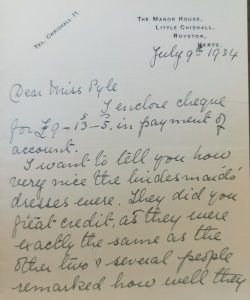 TEL. CHRISHALL 71.
THE MANOR HOUSE,
LITTLE CHISHALL,
ROYSTON,
HERTS.
July 9th 1934
Dear Miss Pyle
I enclose cheque
for £9-13-5, in payment of
account.
I want to tell you how
very nice the bridesmaids'
dresses were. They did you
great credit, as they were
exactly the same as the
other two & several people
remarked how well they